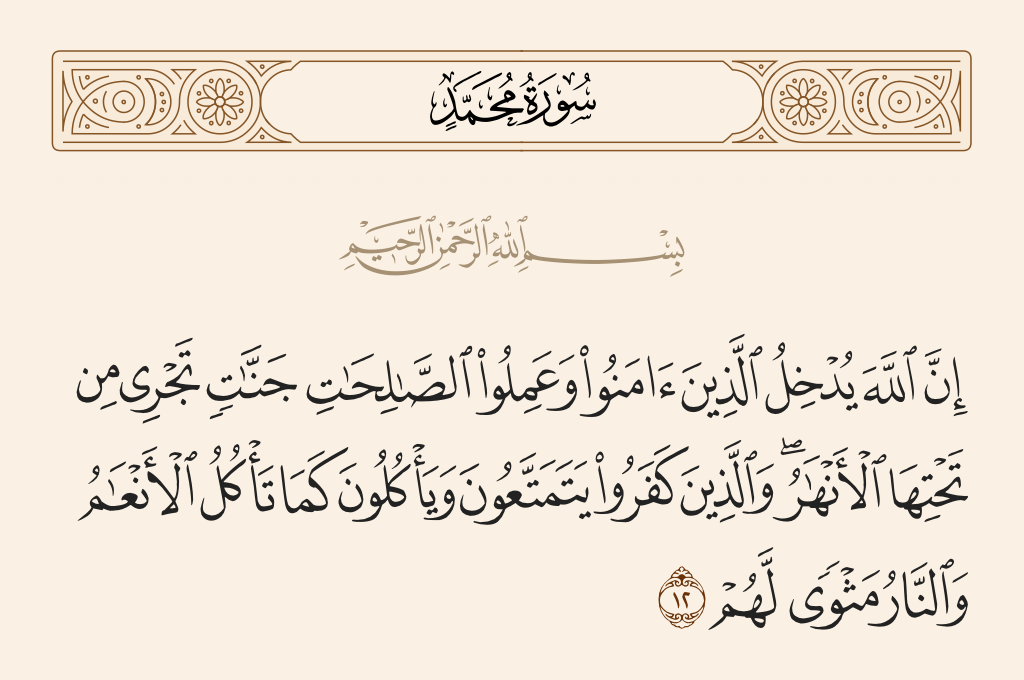 سُورَةُ مُحَمَّدٍ
بِسْمِ ٱللَّهِ ٱلرَّحْمَٰنِ ٱلرَّحِيمِ
إِنَّ ٱللَّهَ يُدْخِلُ ٱلَّذِينَ ءَامَنُوا۟ وَعَمِلُوا۟ ٱلصَّٰلِحَٰتِ جَنَّٰتٍ تَجْرِى مِن
تَحْتِهَا ٱلْأَنْهَٰرُ ۖ وَٱلَّذِينَ كَفَرُوا۟ يَتَمَتَّعُونَ وَيَأْكُلُونَ كَمَا تَأْكُلُ ٱلْأَنْعَٰمُ
وَٱلنَّارُ مَثْوًى لَّهُمْ ١٢